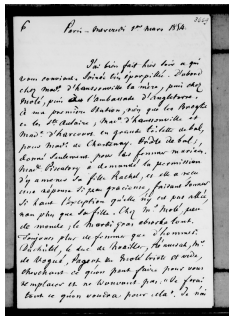 6
Paris - Mercredi 1er mars 1854
J'ai bien fait hier soir ce qui
vous convient. Soirée très éparpillée. D'abord
chez Mad. d'haussonville la mère, puis chez
Molé, puis à l'ambassade d'Angleterre.
à ma première station, rien que les Broglie
et les Ste Aulaire, Mad. d'haussonville et
Mad. d'harcourt en grande toilette de bal,
pour Mad. de Chastenay. Petit bal,
donné seulement pour les femmes mariées.
Mad. Piscatory a demandé la permission
d'y amener sa fille Rachel, et elle a reçu
une réponse si peu gracieuse, faisant sonner
si haut l'exception qu'elle n'y est pas allée
non plus que sa fille. Chez M. Molé peu
de monde; le Mardi gras absorbe tout.
Toujours plus de femmes que d'hommes.
Duchâtel, le duc de Noailles, Rémusat, M.
de Vogué, Pageot. De Molé triste et vide,
cherchant ce qu'on peut faire pour vous
remplacer et ne trouvant pas. "Je ferai
tout ce qu'on voudra pour cela". Je n'ai